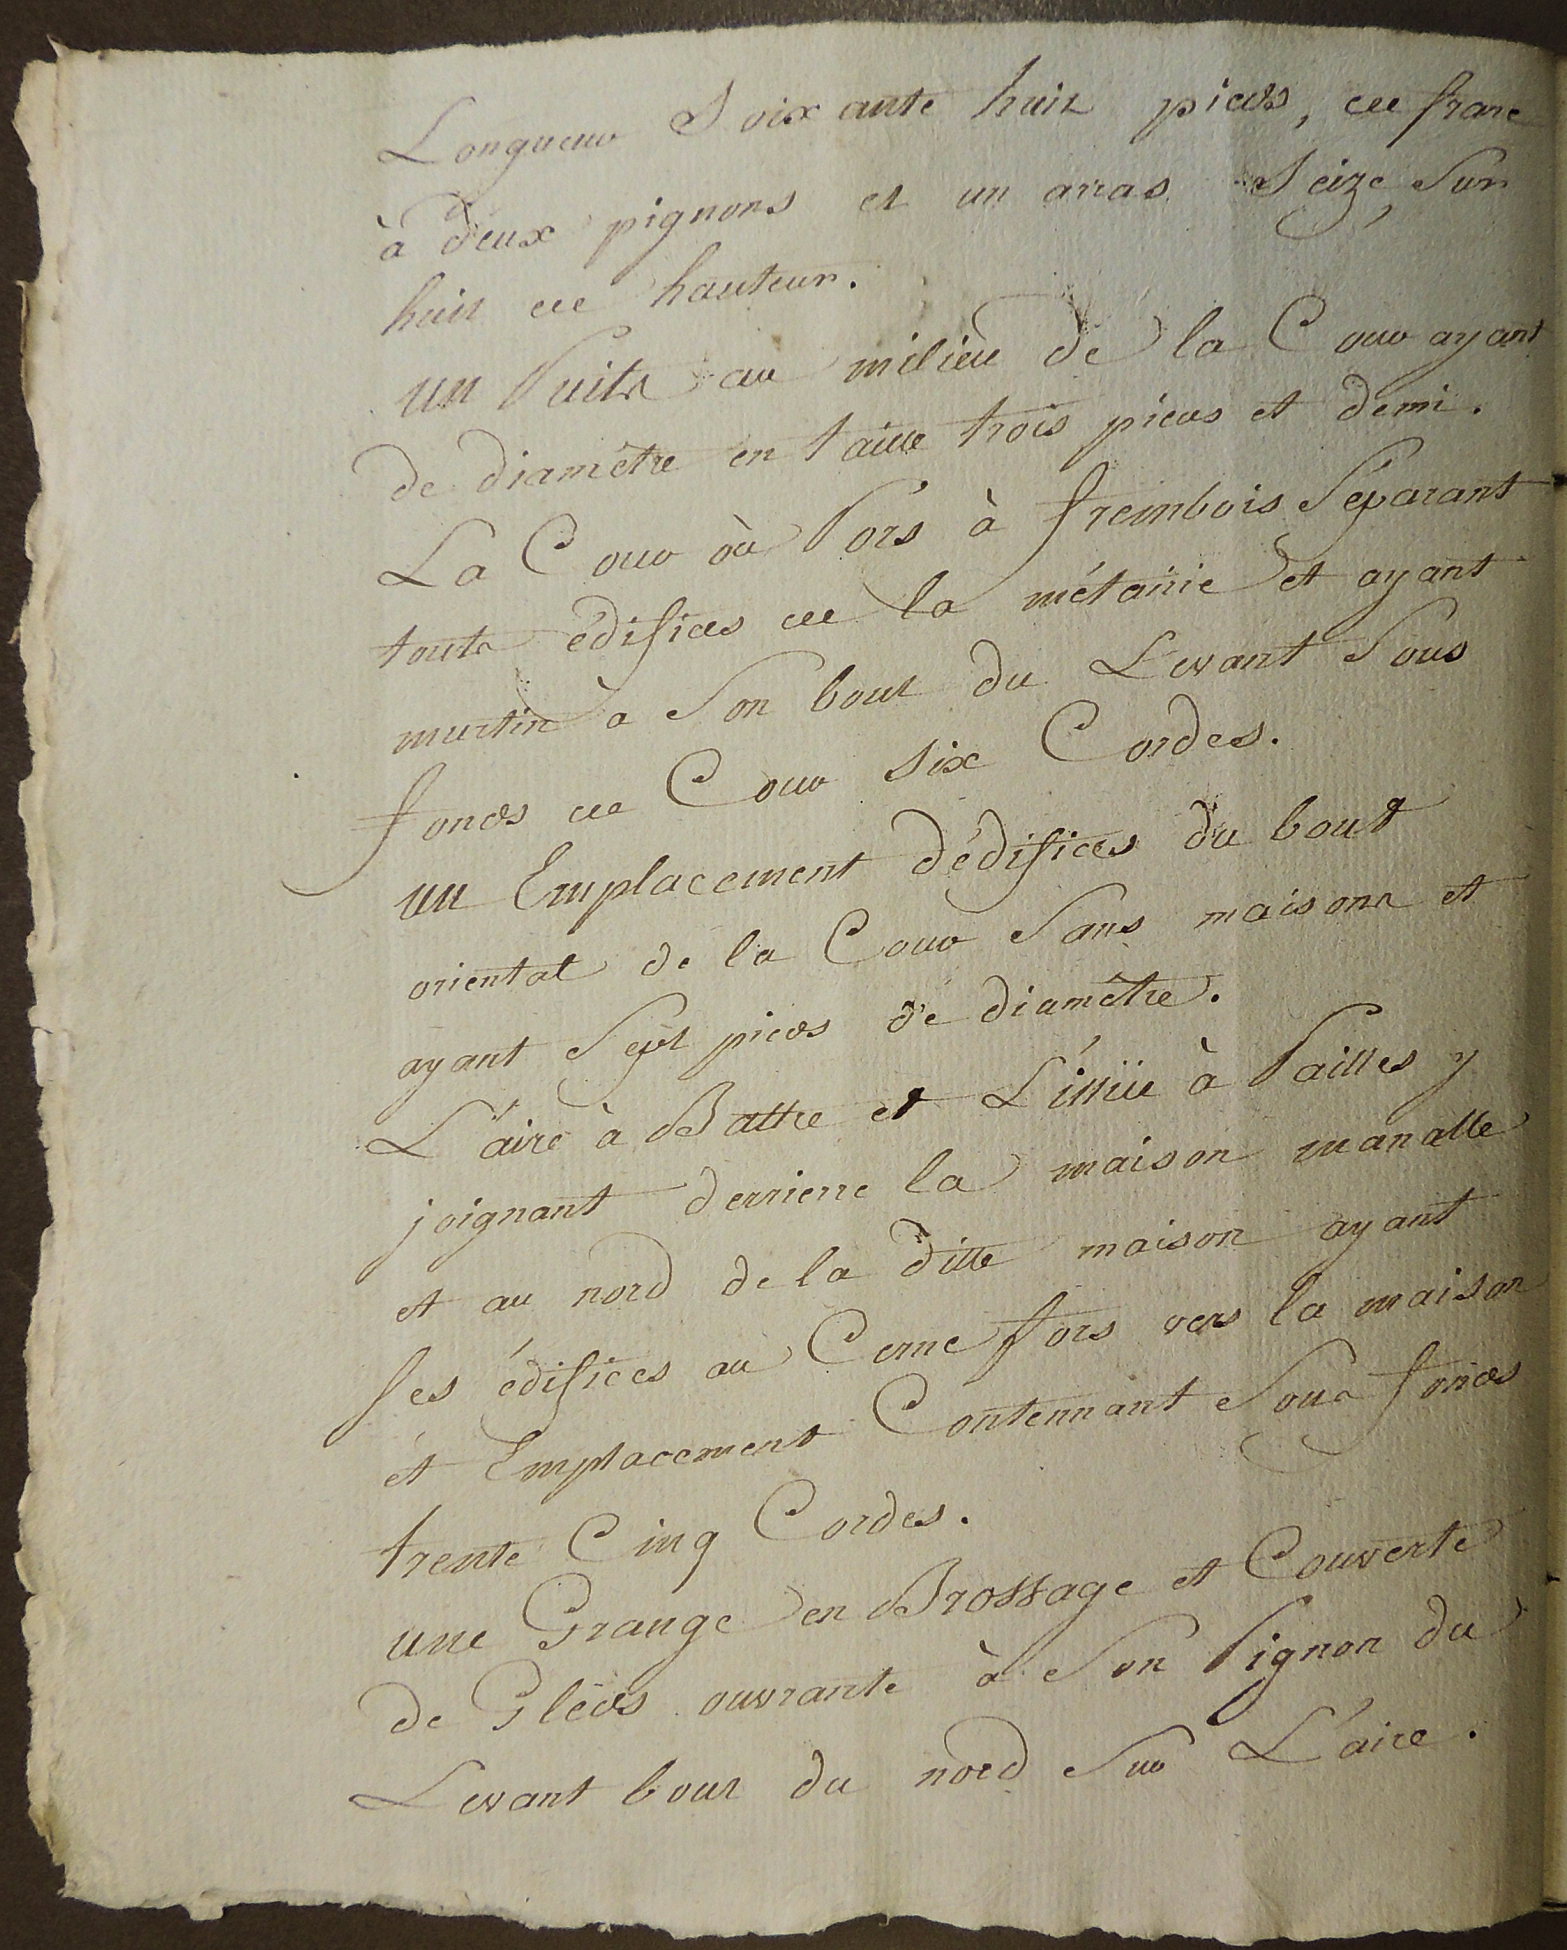 Longueur Soixante huit pieds, de franc
à deux pignons et un arras Seize Sur
huit de hauteur.
un Puits au milieu de la Cour ayant
de diamêtre en taille trois pieds et demi.
La Cour ou Pors à frembois Séparant
touts édifices de la métairie et ayant
murtin a Son bout du Levant Sous
fonds de Cour Six Cordes.
un Emplacement d'édifices du bout
oriental de la Cour Sans maisons et
ayant Sept pieds de diamêtre.
L'aire à Battre et L'issüe à Pailles y
joignant derriere la maison manalle
et au nord de la ditte maison ayant
Ses édifices au Cerne fors vers la maison
et Emplacement Contennant Sous fonds
trente Cinq Cordes.
une Grange en Brossage et Couverte
de Gleds ouvrante à Son Pignon du
Levant bout du nord Sur L'aire.